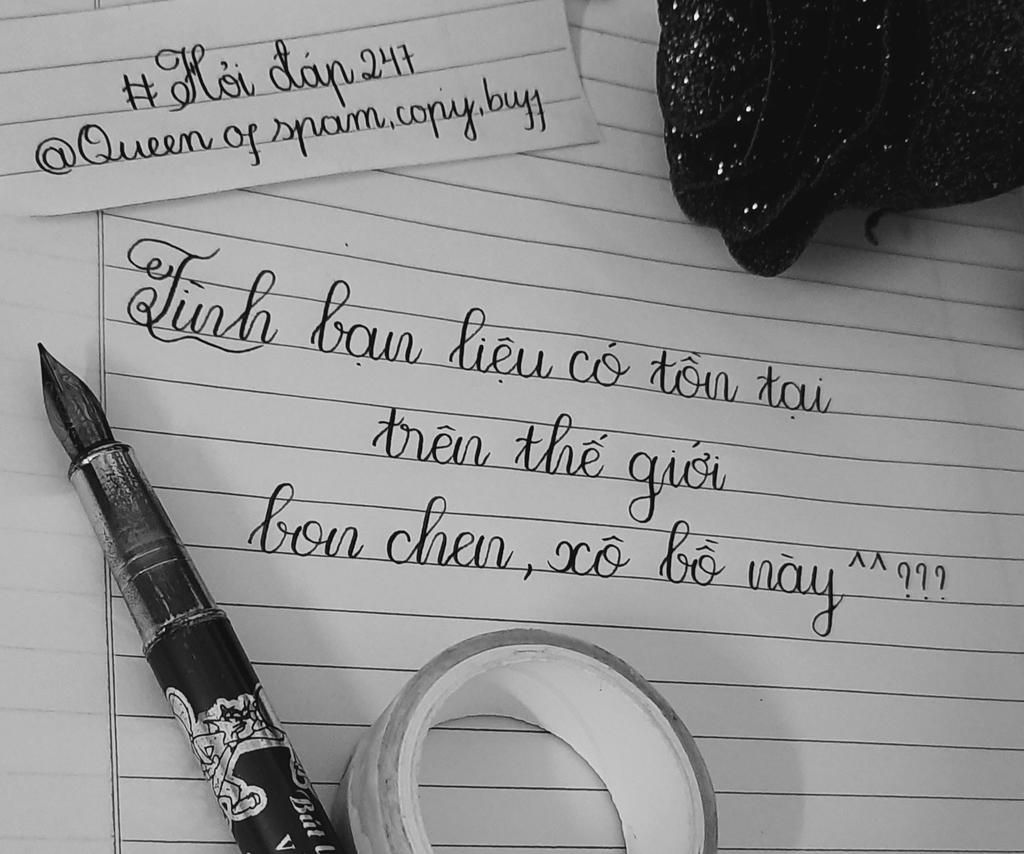 #Hỏi đáp 247
@Queen of spam, copy, buff
Tình bạn liệu có tồn tại
trên thế giới
bon chen, xô bồ này ^^???
Bút